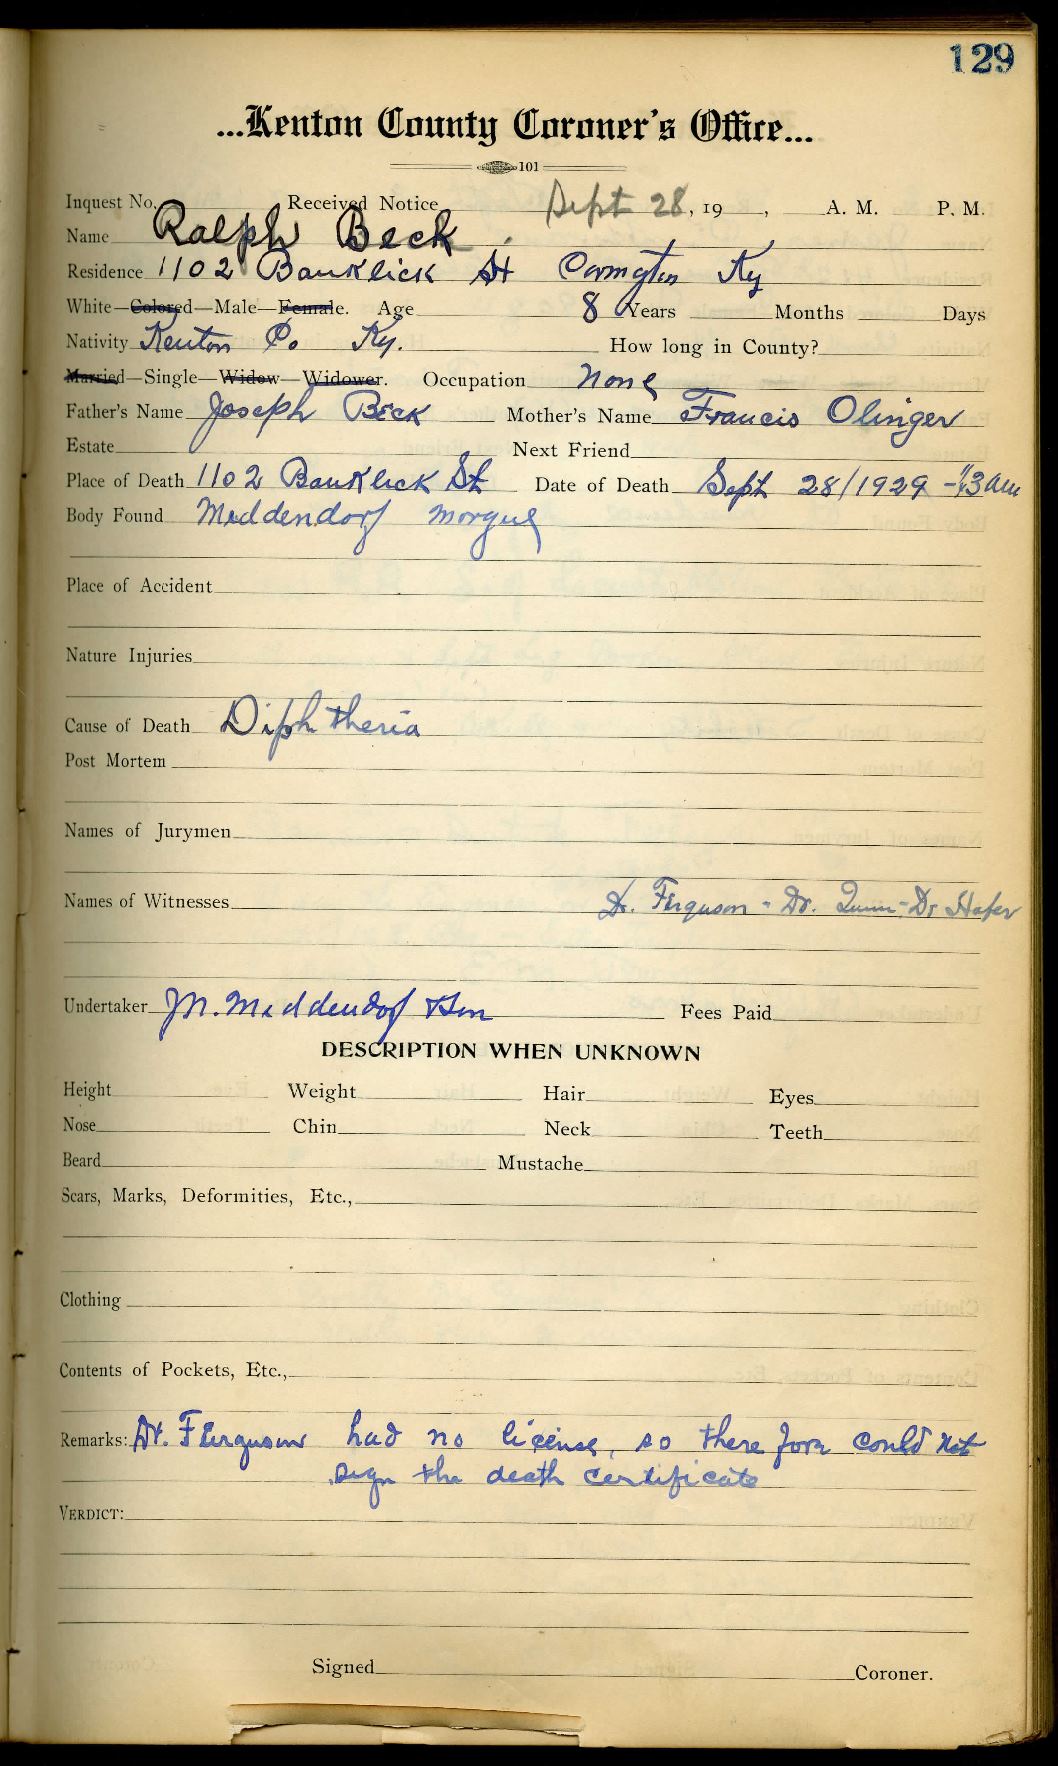 129
...Kenton County Coroner's Office...
101
Inquest No. Received Notice Sept 28, 19 , A. M. P. M.
Name Ralph Beck
Residence 1102 Banklick St Covington Ky
White—Colored—Male—Female. Age 8 Years Months Days
Nativity Kenton Co Ky. How long in County?
Married—Single—Widow—Widower. Occupation None
Father's Name Joseph Beck Mother's Name Francis Olinger
Estate Next Friend
Place of Death 1102 Banklick St Date of Death Sept 28/1929 - am
Body Found Middendorf Morgue
Place of Accident
Nature Injuries
Cause of Death Diphtheria
Post Mortem
Names of Jurymen
Names of Witnesses Dr. Ferguson - Dr. Quinn - Dr Hafer
Undertaker J.N. Middendorf & Son Fees Paid
DESCRIPTION WHEN UNKNOWN
Height Weight Hair Eyes
Nose Chin Neck Teeth
Beard Mustache
Scars, Marks, Deformities, Etc.,
Clothing
Contents of Pockets, Etc.,
Remarks: Dr. Ferguson had no license, so there fore could not
sign the death certificate
VERDICT:
Signed Coroner.